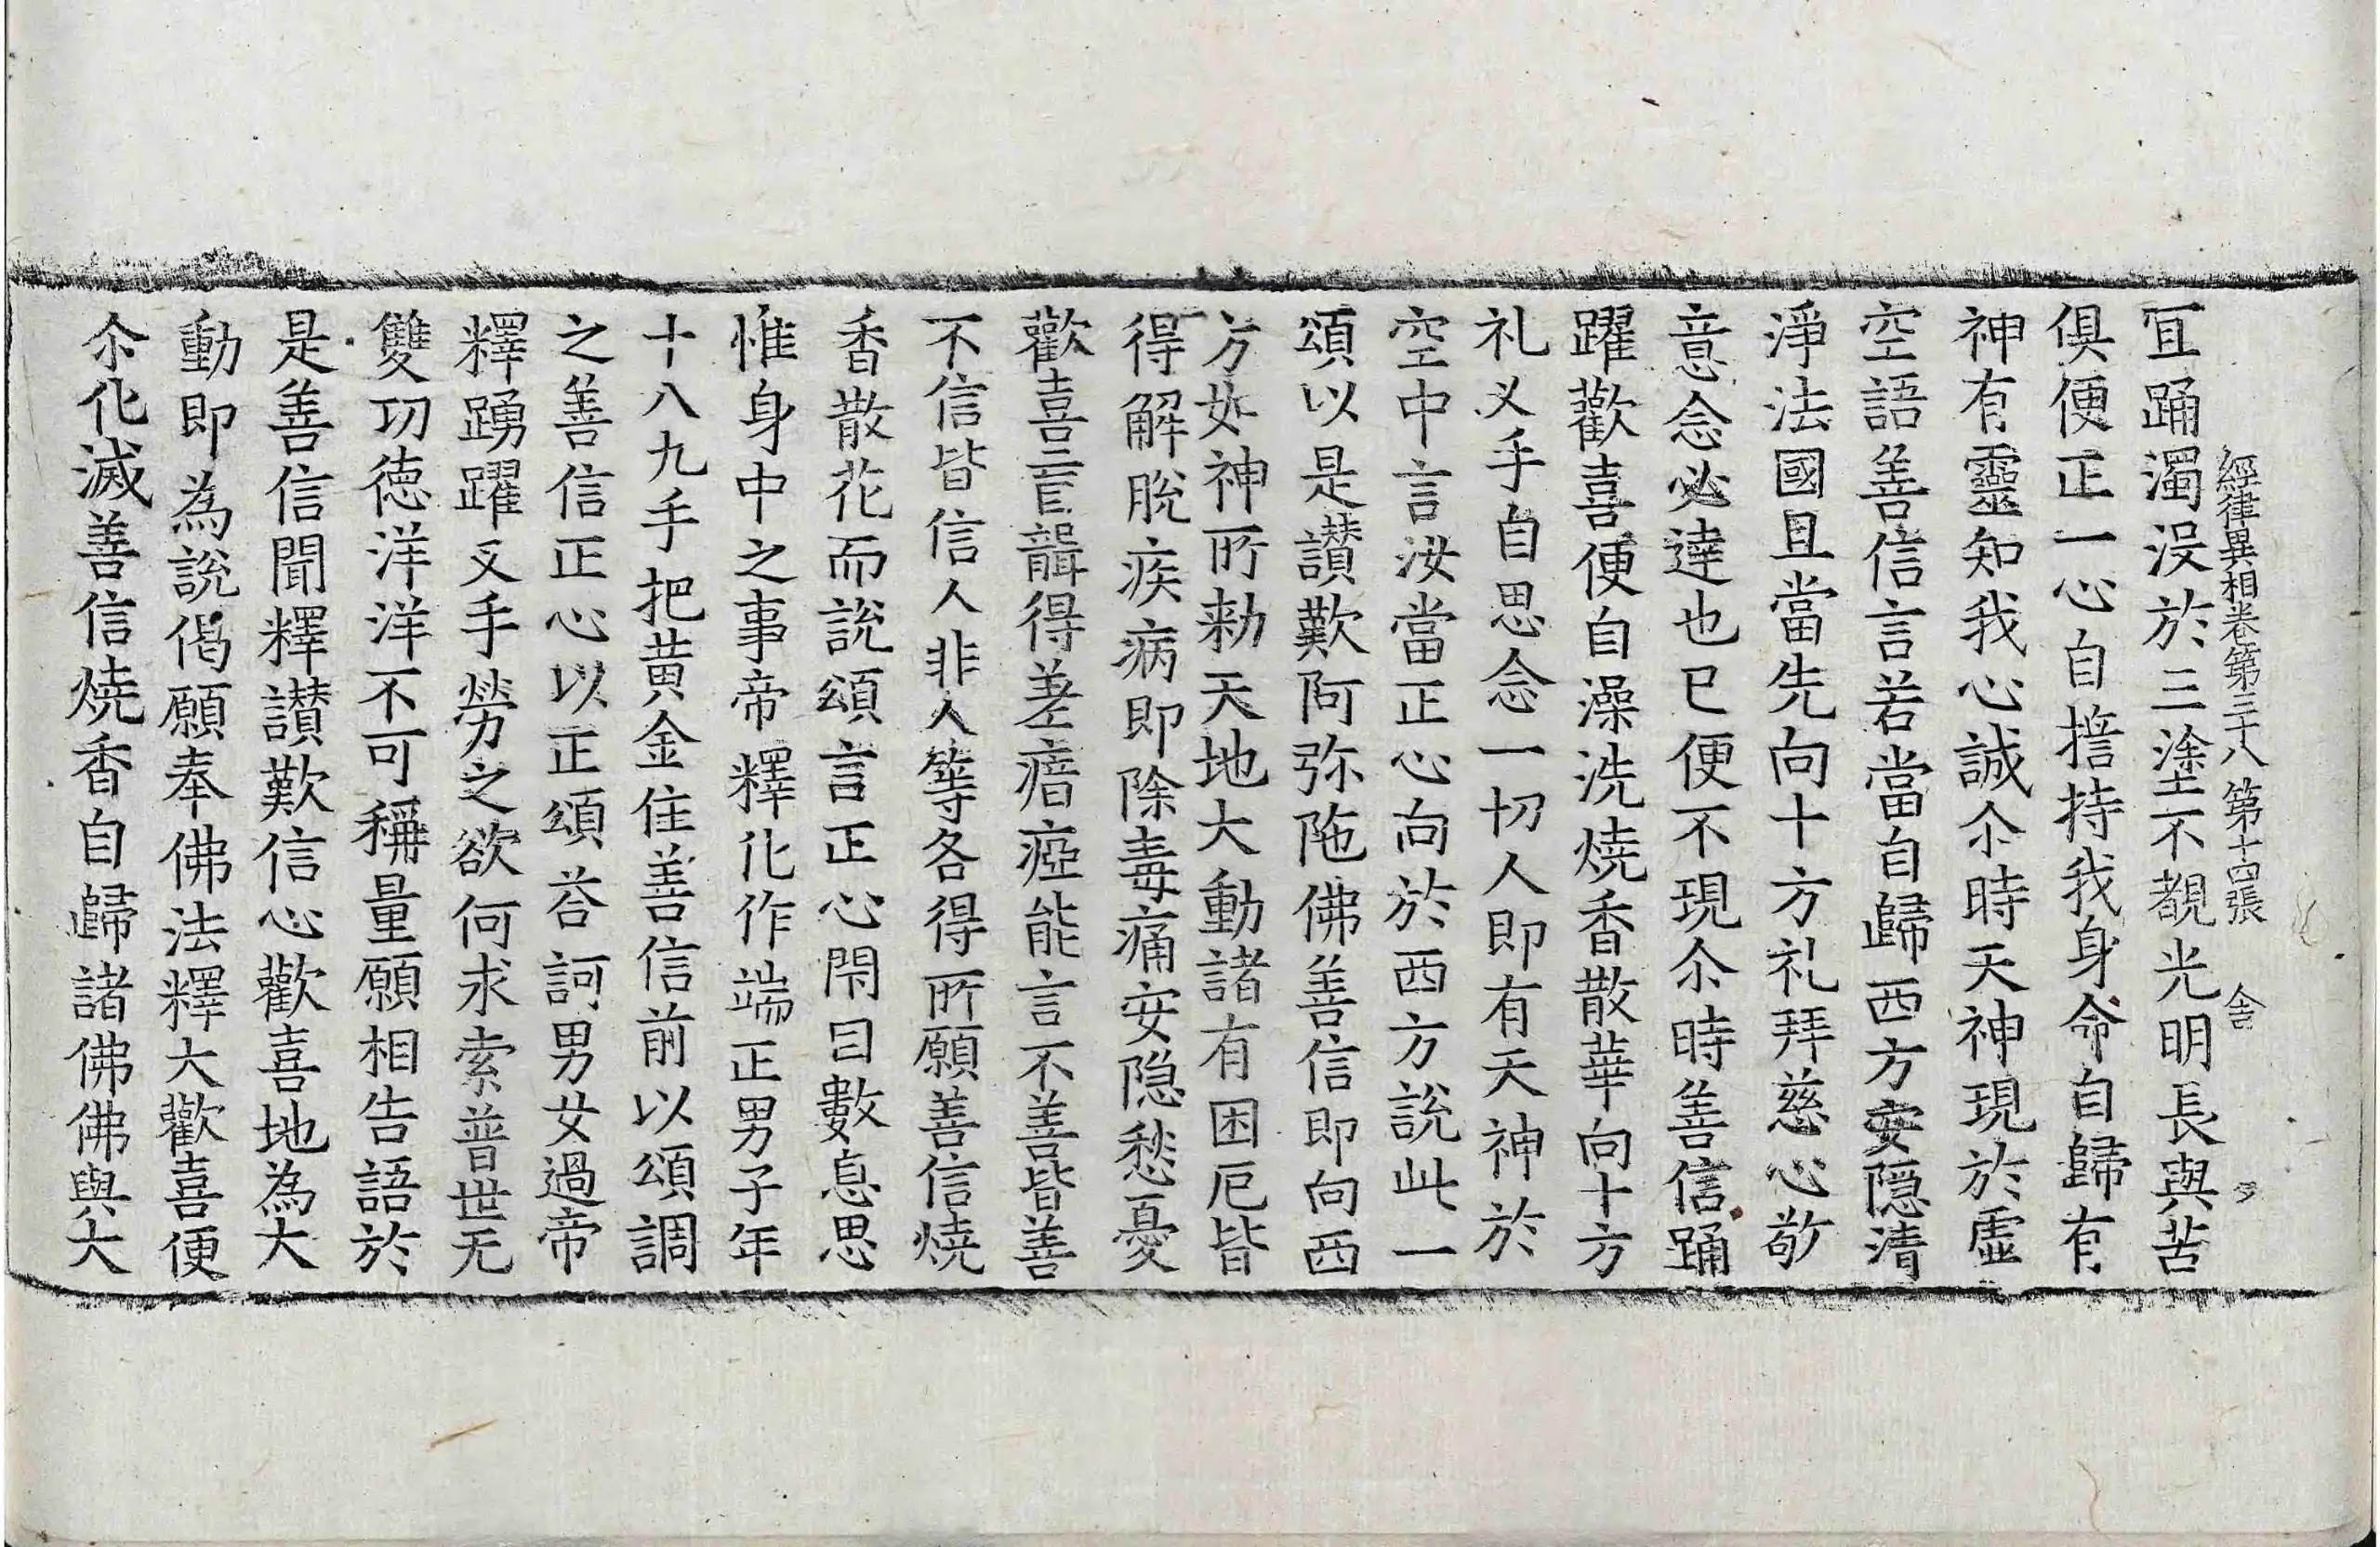 冝踊濁没於三塗不覩光明長與苦
經律異相卷第三十八 第十四張 舍
俱便正一心自擔持我身命自歸有
神有靈知我心誠尒時天神現於虛
空語善信言若當自歸西方安隱清
淨法國且當先向十方礼拜慈心敬
意念必達也已便不現尒時善信踊
躍歡喜便自澡洗燒香散華向十方
礼叉手自思念一切人即有天神於
空中言汝當正心向於西方說此一
頌以是讃歎阿弥陁佛善信即向西
方女神所勑天地大動諸有困厄皆
得解脫疾病即除毒痛安隱愁憂
歡喜盲聾得差瘖瘂能言不善皆善
不信皆信人非人等各得所願善信燒
香散花而說頌言正心閇目數息思
惟身中之事帝釋化作端正男子年
十八九手把黄金住善信前以頌調
之善信正心以正頌荅訶男女過帝
釋踴躍叉手勞之欲何求索普世无
雙功德洋洋不可稱量願相告語於
是善信聞釋讃歎信心歡喜地為大
動即為說偈願奉佛法釋大歡喜便
尒化滅善信燒香自歸諸佛佛與大